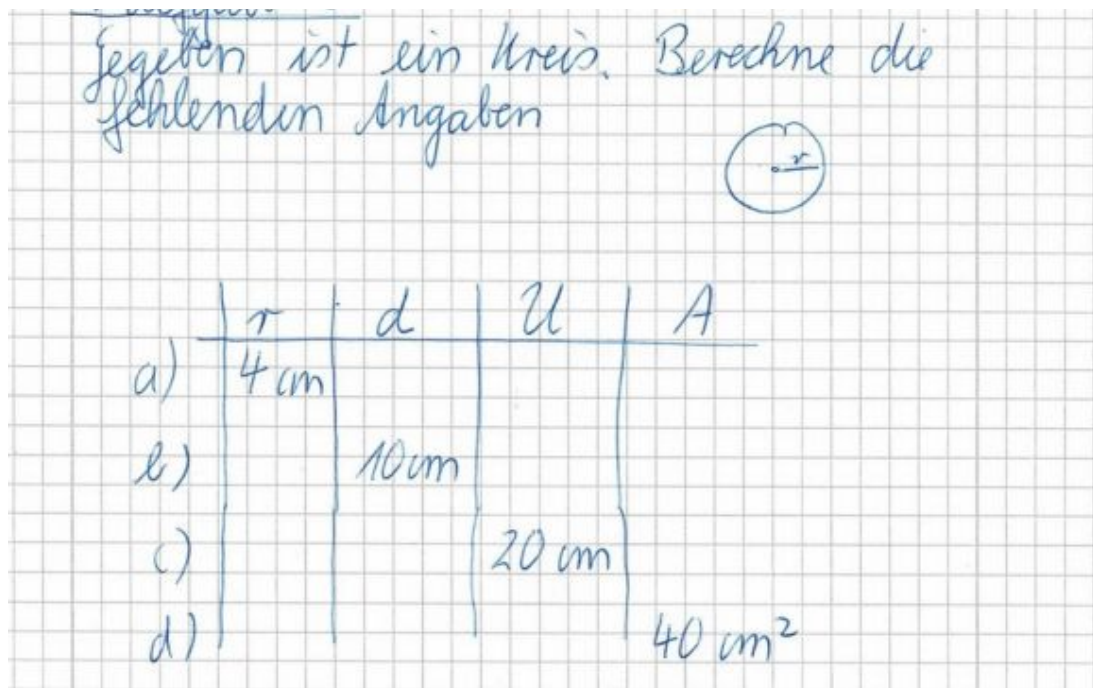 Gegeben ist ein Kreis. Berechne die
fehlenden Angaben
r
r d U A
a) 4 cm
b) 10 cm
c) 20 cm
d) 40 cm²